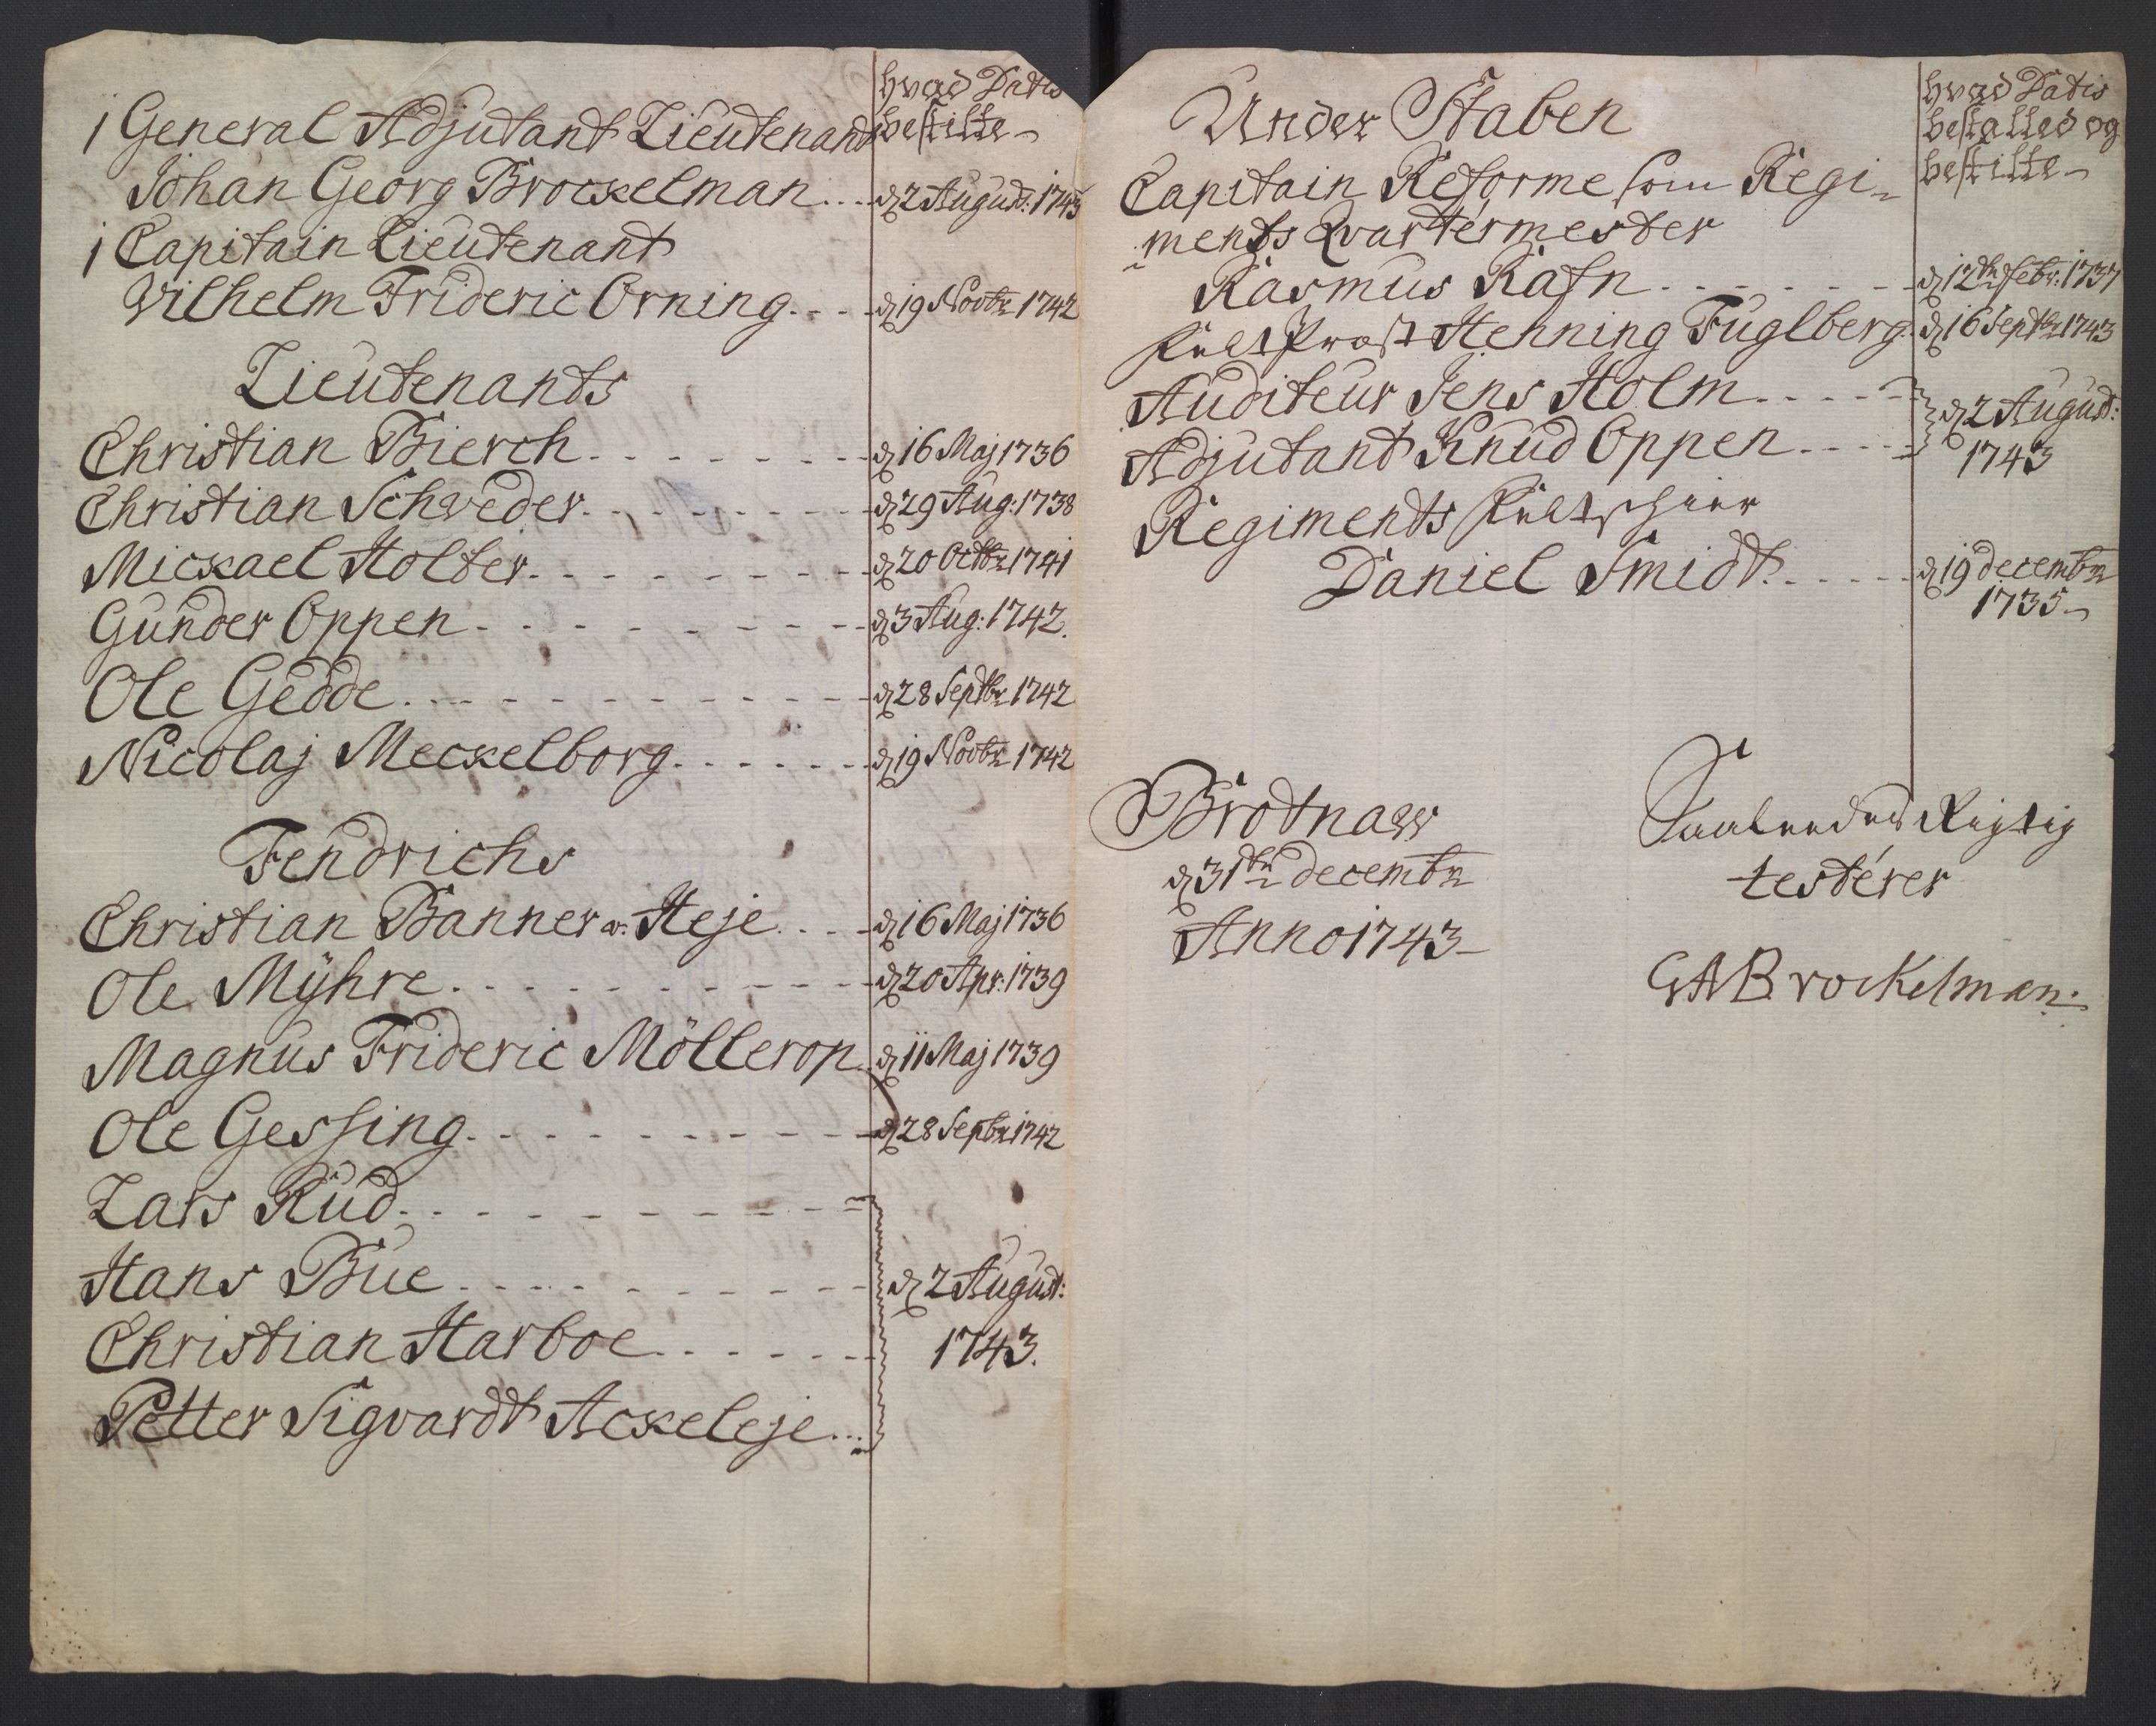 hvad Datis
bestilte
1 General Adjutant Lieutenant
Johan Georg Brockelman d 2 August: 1743
1 Capitain Lieutenant
Vilhelm Frideric Orning d 19 Novbr 1742
Lieutenants
Christian Bierch d 16 Maj 1736
Christian Schweder d 29 Aug: 1738
Mickael Holter d 20 Octbr 1741
Gunder Oppen d 3 Aug: 1742.
Ole Gedde d 28 Septbr 1742
Nicolaj Meckelborg d 19 Novbr 1742
Fendrichs
Christian Banner v. Heje d 16 Maj 1736
Ole Mÿhre d 20 Apr: 1739
Magnus Frideric Möllerop d 11 Maj 1739
Ole Gessing d 28 Sepbr 1742
Lars Rud
Hans Bue d 2 August:
Christian Harboe 1743.
Petter Sigvardt Ackeleje
hvad Datis
bestalled og
bestilte
Under Staben
Capitain Reforme som Regi-
ments Qvartérmester
Rasmus Rafn d 12te Febr: 1737
Felt Præst Henning Fuglberg d 16 Septbr 1743
Auditeur Jens Holm d 2 August:
Adjutant Knud Oppen 1743
Regiments Feltschier
Daniel Smidt d 19 decembr
1735
Brotnaw
d 31te decembr
Anno 1743
Saaledes Rigtig
testérer
GABrockelman.